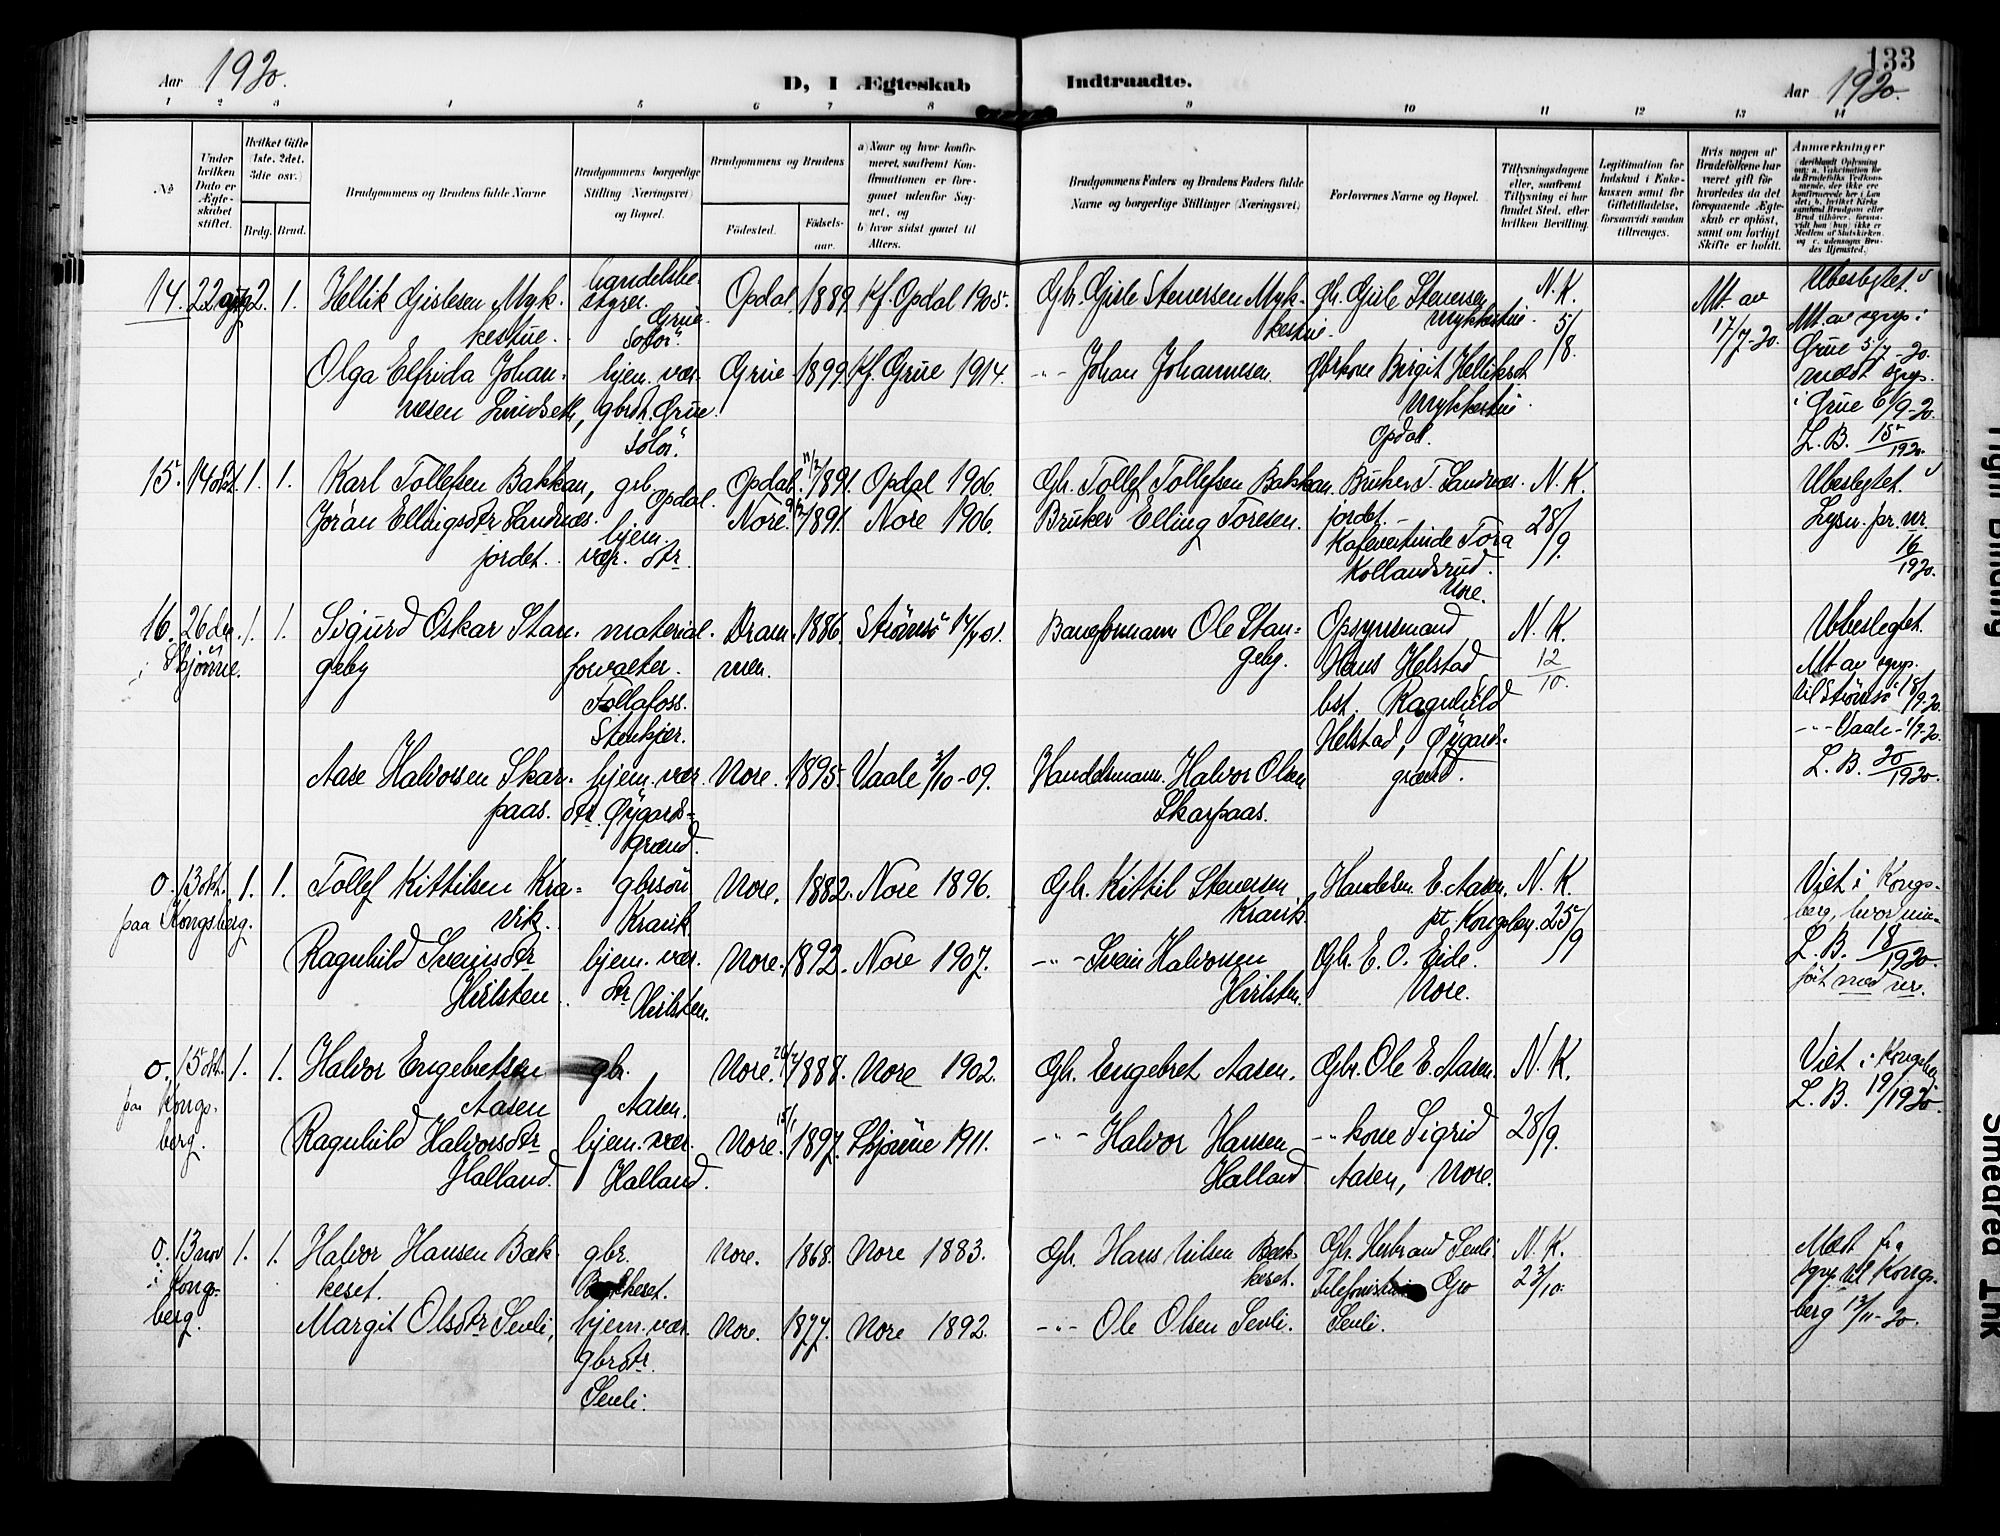 133
Aar 1920.
D, I Ægteskab Indtraadte.
Aar 1920.
1 2 3 4 5 6 7 8 9 10 11 12 13 14
No
Under hvilken Dato er Ægteskabet stiftet.
Hvilket Gifte (1ste, 2det, 3die osv.)
Brdg. Brud.
Brudgommens og Brudens fulde Navne
Brudgommens borgerlige Stilling (Næringsvei) og Bopæl.
Brudgommens og Brudens
Fødested. Fødselsaar.
a) Naar og hvor konfirmeret, saafremt Konfirmationen er foregaaet udenfor Sognet, og
b) hvor sidst gaaet til Alters.
Brudgommens Faders og Brudens Faders fulde Navne og borgerlige Stillinger (Næringsvei)
Forlovernes Navne og Bopæl.
Tillysningsdagene eller, saafremt Tillysning ei har fundet Sted, efter hvilken Bevilling.
Legitimation for Indskud i Enkekassen samt for Giftetilladelse, forsaavidt saadan tiltrænges.
Hvis nogen af Brudefolkene har været gift før hvorledes da det foregaaende Ægteskab er opløst, samt om lovligt Skifte er holdt.
Anmærkninger
14. 22 aug 2. 1. Hellik Gislesen Mykkestue. handelsbestyrer Grue Solør. Opdal 1889. Kf. Opdal 1905. Gbr. Gisle Stenersen Mykkestue. Gbr. Gisle Stenersen Mykkestue. N. K. 5/8. At. av 17/7-20. Ubeslegtet.
At. av sgnp. i Grue 5/7-20. medt sgnp. i Grue 6/9-20. L. B. 15/1920.
Olga Elfrida Johannesen Lindseth, hjem. vær. gbrdt. Grue Solør. Grue 1899. Kf. Grue 1914. -"- Johan Johannesen. Gbrkone Birgit Helliksdt Mykkestue Opdal.
15. 14 okt. 1. 1. Karl Tollefsen Bakkan, grb. Opdal. Opdal 11/2 1891. Opdal 1906. Gbr. Tollef Tollefsen Bakkan. Bruker T. Sandnesjordet. N. K. 28/9. Ubeslegtet.
Lysn. pr. nr 16/1920.
Jorån Ellingsdtr Sandnesjordet. hjem. vær. dtr. Nore. 1891. Nore 1906. Bruker Elling Toresen. Kafévertinde Tora Kollandsrud. Nore.
16. 26 dec. i Skjønne. 1. 1. Sigurd Oskar Stangeby materialforvalter. Follafoss. Stenkjer. Drammen. 1886. Strømsø 14/4 01. Baneformann Ole Stangeby. Opsynsmand Hans Helstad, bst. Ragnhild Helstad, Øygardsgrænd. N. K. 12/10. Ubeslegtet.
At av sgnp. til Strømsø 18/9-20. -"- Vaale 1/9-20. L. B. 20/1920.
Aase Halvorsen Skarpaas. hjem. vær. dtr. Øygardsgrænd. Nore. 1895. Vaale 3/10-09. Handelsmann. Halvor Olsen Skarpaas.
0. 13 okt. paa Kongsberg. 1. 1. Tollef Kittilsen Kravik. gbrsøn Kravik. Nore. 1882. Nore 1896. Gbr. Kittil Stenersen Kravik. Handelsm. E. Aasen, pt. Kongsberg. N. K. 25/9 Viet i Kongsberg, hvor min- L. B. 18/1920. ført med nr.
Ragnhild Sveinsdtr Hvilsten. hjem. vær. dtr Hvilsten. Nore. 1892. Nore 1907. -"- Svein Halvorsen Hvilsten. Gbr. E. O. Eide. Nore.
0. 15 okt. paa Kongsberg. 1. 1. Halvor Engebretsen Aasen gbr. Aasen. Nore. 26/7 1888. Nore 1902. Gbr. Engebret Aasen. Gbr. Ole E. Aasen. N. K. 28/9. Viet i Kongsberg L. B. 19/1920.
Ragnhild Halvorsdtr Halland. hjem. vær. Halland. Nore. 15/1 1897. Skjønne 1911. -"- Halvor Hansen Halland -"- kone Sigrid Aasen, Nore.
0. 13 nov i Kongsberg. 1. 1. Halvor Hansen Bækkeset. gbr. Bækkeset. Nore. 1868. Nore 1883. Gbr. Hans Nilsen Bækkeset. Gbr. Herbrand Senli Telefonistinde Gro Senli. N. K. 23/10. Medt fra sgnp. til Kongsberg 13/11-20.
Margit Olsdtr Senli, hjem. vær. gbrdtr. Senli. Nore. 1877. Nore 1892. -"- Ole Olsen Senli.
Smeared Ink